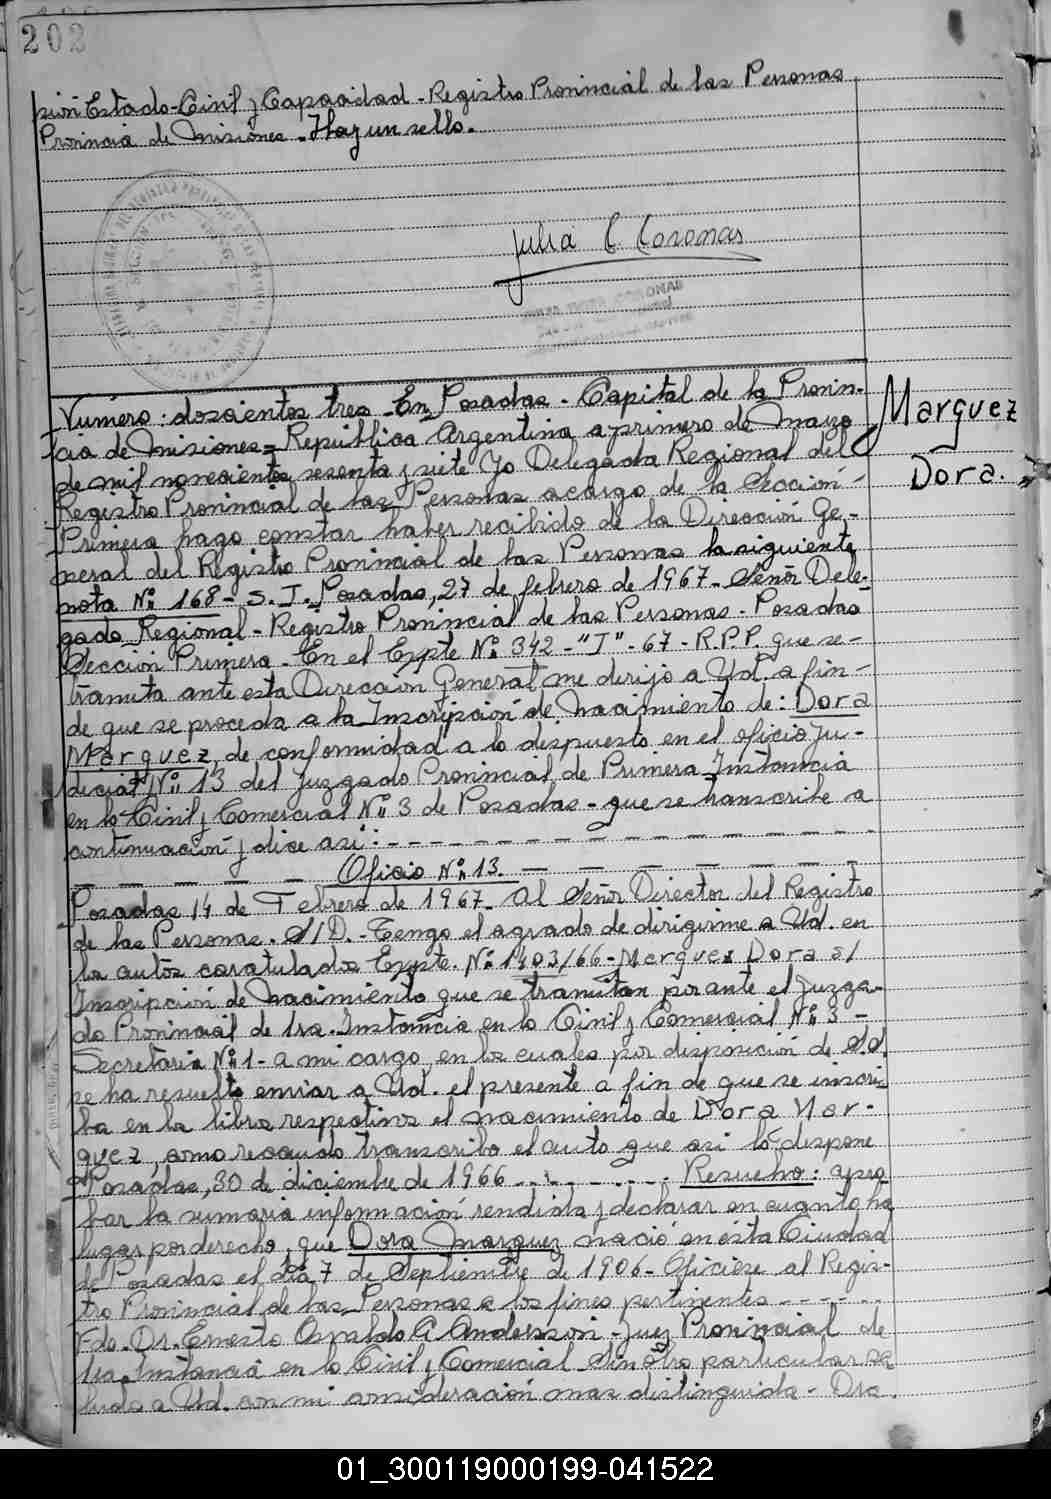 202
sión Estado-Civil y Capacidad - Registro Provincial de las Personas
Provincia de Misiones - Hay un sello.
Julia C. Coronas
CORONAS
Marquez
Dora.
Número: doscientos tres - En Posadas - Capital de la Provin-
cia de Misiones = República Argentina a primero de Mayo
de mil novecientos sesenta y siete Yo Delegada Regional del
Registro Provincial de las Personas a cargo de la Sección -
Primera hago constar haber recibido de la Dirección Ge-
neral del Registro Provincial de las Personas la siguiente
nota Nº 168 - S. I. Posadas, 27 de febrero de 1967 - Señor Dele-
gado Regional - Registro Provincial de las Personas - Posadas
Sección Primera - En el Expte Nº 342 - "I" - 67 - R.P.P. que se -
tramita ante esta Dirección General me dirijo a Ud. a fin -
de que se proceda a la Inscripción de Nacimiento de: Dora
Marquez, de conformidad a lo dispuesto en el oficio Ju-
dicial Nº 13 del Juzgado Provincial de Primera Instancia
en lo Civil y Comercial Nº 3 de Posadas - que se transcribe a
continuación y dice así: - - - - - - - - - - - - - - -
Oficio Nº 13. -
Posadas 14 de Febrero de 1967 - Al Señor Director del Registro
de las Personas. S/D. - Tengo el agrado de dirigirme a Ud. en
los autos caratulados Expte. Nº 1403/66 - Marquez Dora s/
Inscripción de Nacimiento que se tramitan por ante el Juzga-
do Provincial de 1ra. Instancia en lo Civil y Comercial Nº 3 -
Secretaria Nº 1 - a mi cargo, en los cuales por disposición de S.S.
se ha resuelto enviar a Ud. el presente a fin de que se inscri-
ba en la libro respectivo el nacimiento de Dora Mar-
quez, como recaudo transcribo el auto que así lo dispone
Posadas, 30 de diciembre de 1966 - - - - - - - - Resuelvo: apro
bar la sumaria información rendida y declarar en cuanto ha
lugar por derecho, que Dora Marquez nació en ésta Ciudad
de Posadas el día 7 de Septiembre de 1906 - Ofíciese al Regis-
tro Provincial de las Personas a los fines pertinentes - - - - - -
Fdo. Dr. Ernesto Osvaldo A Andersson - Juez Provincial de
1ra. Instancia en lo Civil y Comercial Sin otro particular sa
ludo a Ud. con mi consideración mas distinguida - Dra.
01_300119000199-041522